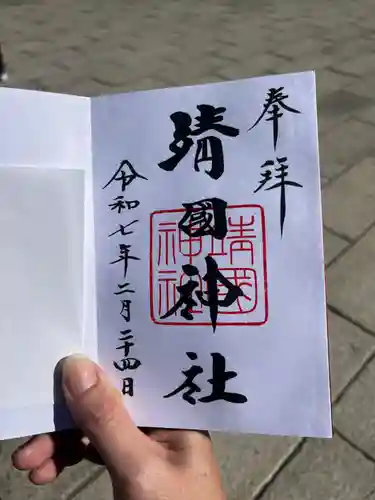 奉拝
靖國神社
靖國神社
令和七年二月二十四日